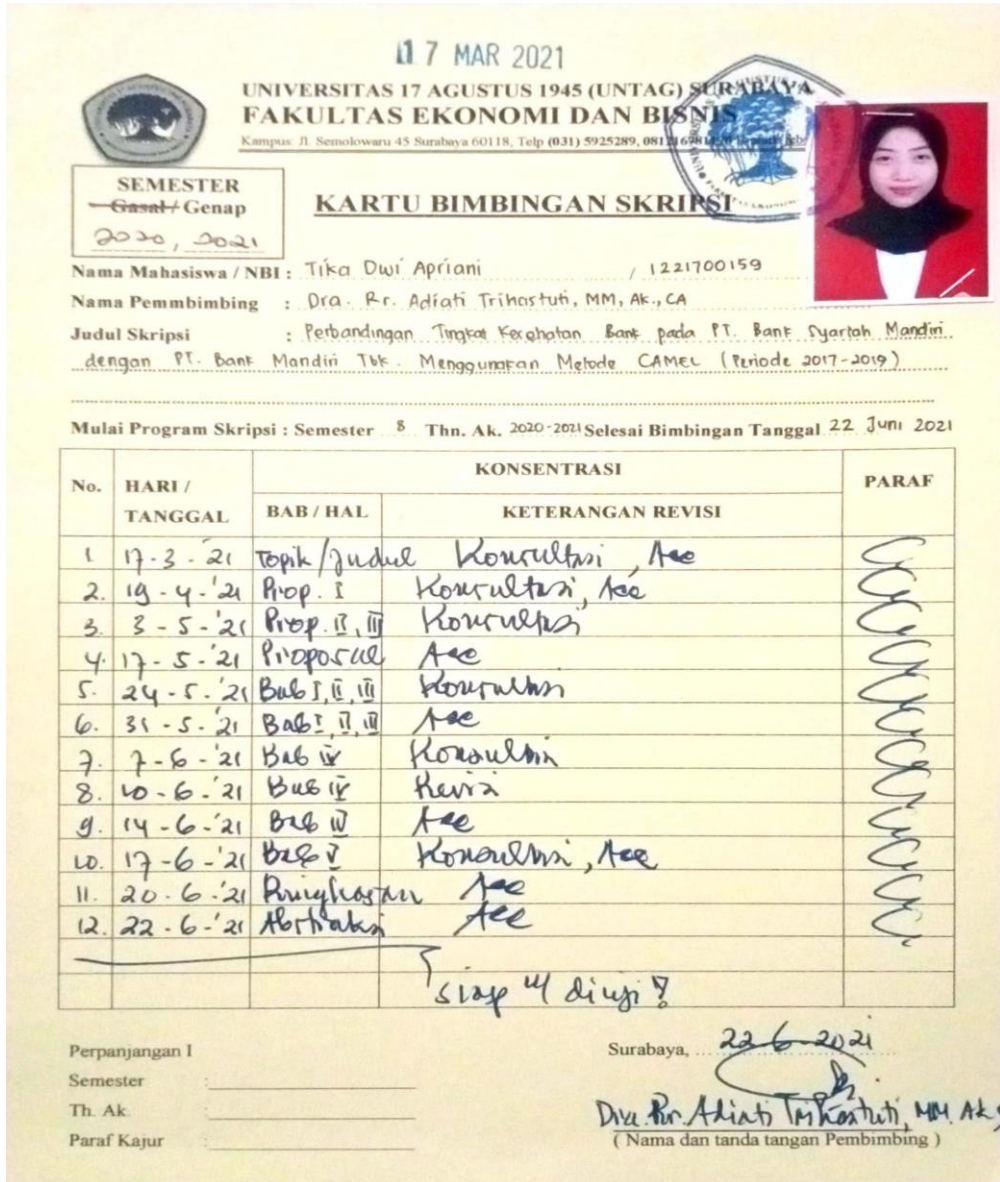 17 MAR 2021
UNIVERSITAS 17 AGUSTUS 1945 (UNTAG) SURABAYA
FAKULTAS EKONOMI DAN BISNIS
Kampus: Jl. Semolowaru 45 Surabaya 60118, Telp (031) 5925289,
SEMESTER
Gasal / Genap
2020, 2021
KARTU BIMBINGAN SKRIPSI
Nama Mahasiswa / NBI : Tika Dwi Apriani / 1221700159
Nama Pemmbimbing : Dra. Rr. Adiati Trihastuti, MM, Ak., CA
Judul Skripsi : Perbandingan Tingkat Kesehatan Bank pada PT. Bank Syariah Mandiri
dengan PT. Bank Mandiri Tbk. Menggunakan Metode CAMEL (Periode 2017-2019)
Mulai Program Skripsi : Semester 8 Thn. Ak. 2020-2021 Selesai Bimbingan Tanggal 22 Juni 2021
No. HARI / TANGGAL KONSENTRASI PARAF
BAB / HAL KETERANGAN REVISI
1 17-3-'21 Topik/Judul Konsultasi, Acc
2. 19-4-'21 Prop. I Konsultasi, Acc
3. 3-5-'21 Prop. II, III Konsultasi
4. 17-5-'21 Proposal Acc
5. 24-5-'21 Bab I, II, III Konsultasi
6. 31-5-'21 Bab I, II, III Acc
7. 7-6-'21 Bab IV Konsultasi
8. 10-6-'21 Bab IV Revisi
9. 14-6-'21 Bab IV Acc
10. 17-6-'21 Bab V Konsultasi, Acc
11. 20-6-'21 Ringkasan Acc
12. 22-6-'21 Abstraksi Acc
siap u/ diuji
Perpanjangan I
Semester :
Th. Ak. :
Paraf Kajur :
Surabaya, 22-6-2021
Dra. Rr. Adiati Trihastuti, MM. Ak,
( Nama dan tanda tangan Pembimbing )